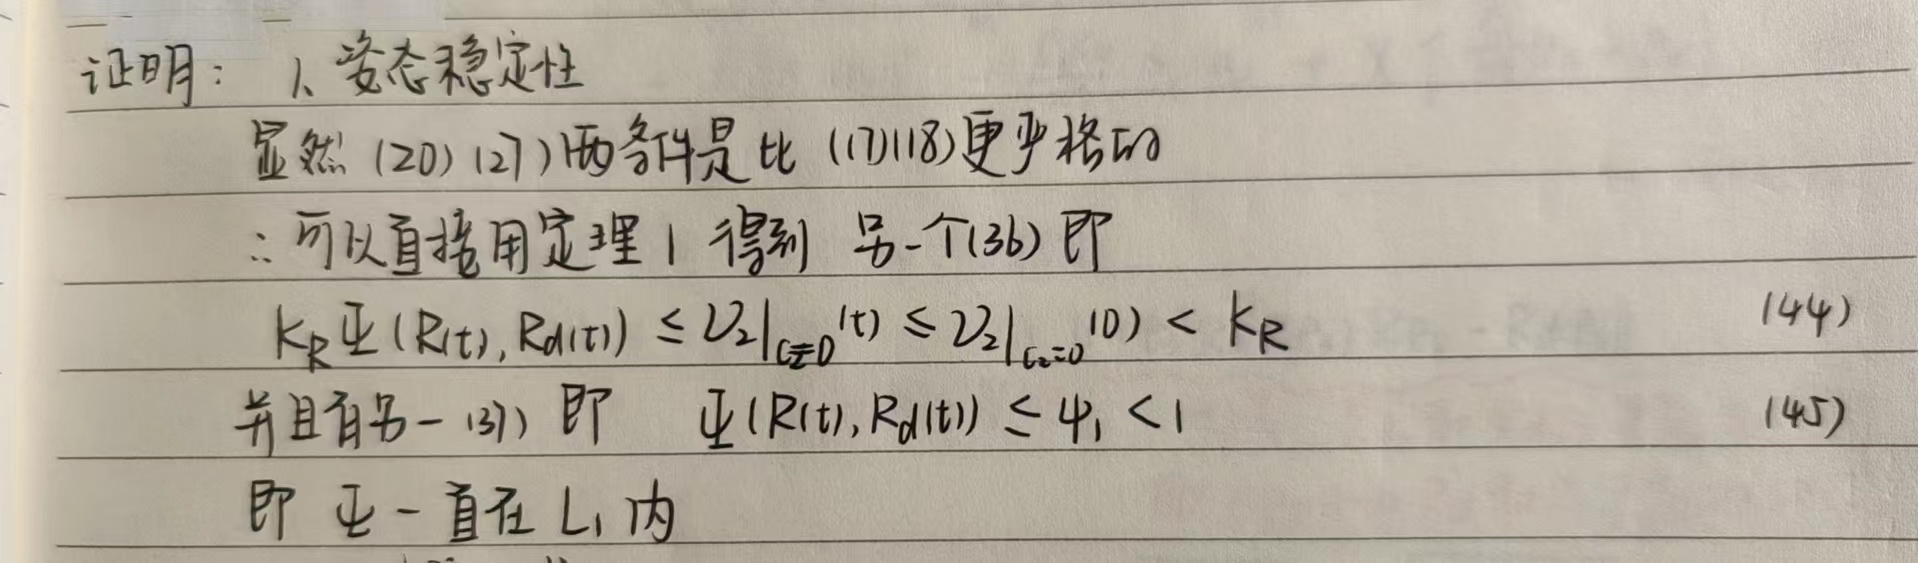 证明： 1、姿态稳定性
显然 (20) (27) 两条件是比 (17)(18) 更严格的
∴ 可以直接用定理1 得到 另一个(36) 即
k_R Ψ(R(t), Rd(t)) ≤ V₂|_{C₂=0}(t) ≤ V₂|_{C₂=0}(0) < k_R (44)
并且有另一(37) 即 Ψ(R(t), Rd(t)) ≤ ψ₁ < 1 (45)
即 Ψ 一直在 L₁ 内